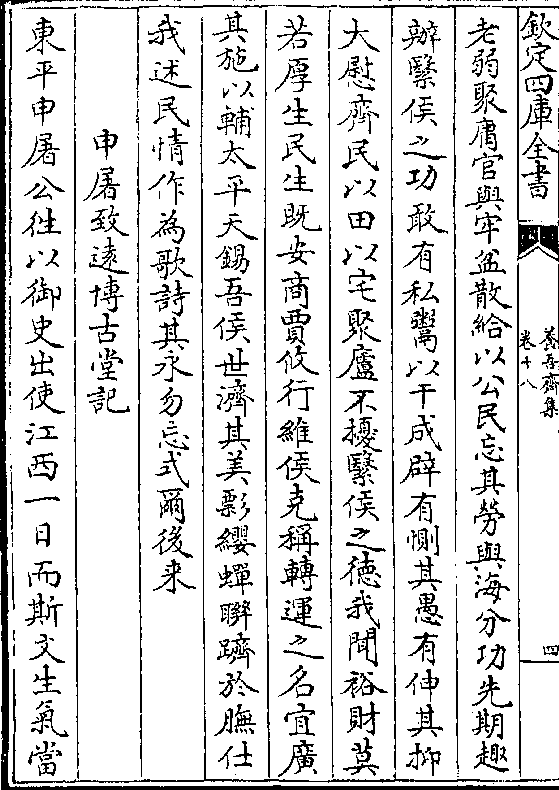 欽定四庫全書
養吾齋集
卷十八
四
老弱聚庸官與牢盆散給以公民忘其勞與海分功先期趣
辦繄侯之功敢有私鬻以干成辟有惻其愚有伸其抑
大慰齊民以田以宅聚廬不擾繄侯之德我聞裕財莫
若厚生民生既安商賈攸行維侯克稱轉運之名宜廣
其施以輔太平天錫吾侯世濟其美影纓蟬聮躋於膴仕
我述民情作為歌詩其永勿忘式爾後来
申屠致遠博古堂記
東平申屠公徃以御史出使江西一日而斯文生氣當